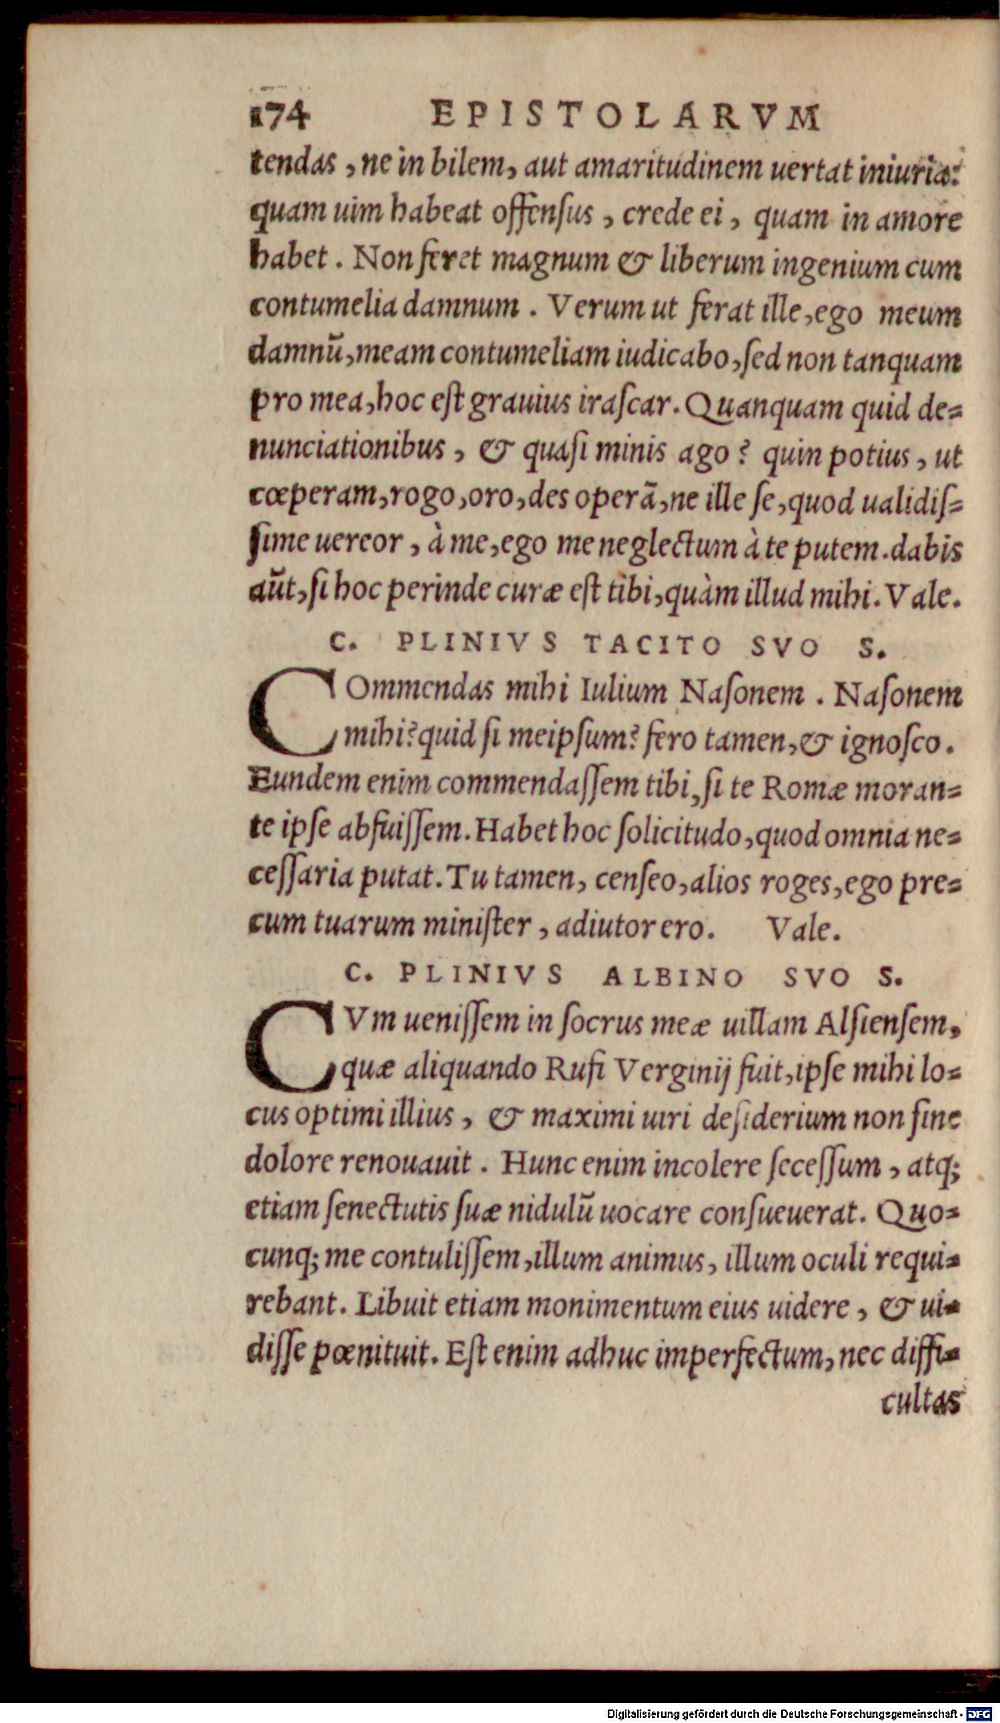 174 EPISTOLARVM
tendas, ne in bilem, aut amaritudinem uertat iniuria:
quam uim habeat offensus, crede ei, quam in amore
habet. Non feret magnum & liberum ingenium cum
contumelia damnum. Verum ut ferat ille, ego meum
damnũ, meam contumeliam iudicabo, sed non tanquam
pro mea, hoc est grauius irascar. Quanquam quid de=
nunciationibus, & quasi minis ago? quin potius, ut
cœperam, rogo, oro, des operã, ne ille se, quod ualidis=
sime uereor, à me, ego me neglectum à te putem. dabis
aũt, si hoc perinde curæ est tibi, quàm illud mihi. Vale.
C. PLINIVS TACITO SVO S.
COmmendas mihi Iulium Nasonem. Nasonem
mihi? quid si meipsum? fero tamen, & ignosco.
Eundem enim commendassem tibi, si te Romæ moran=
te ipse abfuissem. Habet hoc solicitudo, quod omnia ne=
cessaria putat. Tu tamen, censeo, alios roges, ego pre=
cum tuarum minister, adiutor ero. Vale.
C. PLINIVS ALBINO SVO S.
CVm uenissem in socrus meæ uillam Alsiensem,
quæ aliquando Rufi Verginij fuit, ipse mihi lo=
cus optimi illius, & maximi uiri desiderium non sine
dolore renouauit. Hunc enim incolere secessum, atq;
etiam senectutis suæ nidulũ uocare consueuerat. Quo=
cunq; me contulissem, illum animus, illum oculi requi=
rebant. Libuit etiam monimentum eius uidere, & ui=
disse pœnituit. Est enim adhuc imperfectum, nec diffi=
cultas
Digitalisierung gefördert durch die Deutsche Forschungsgemeinschaft - DFG